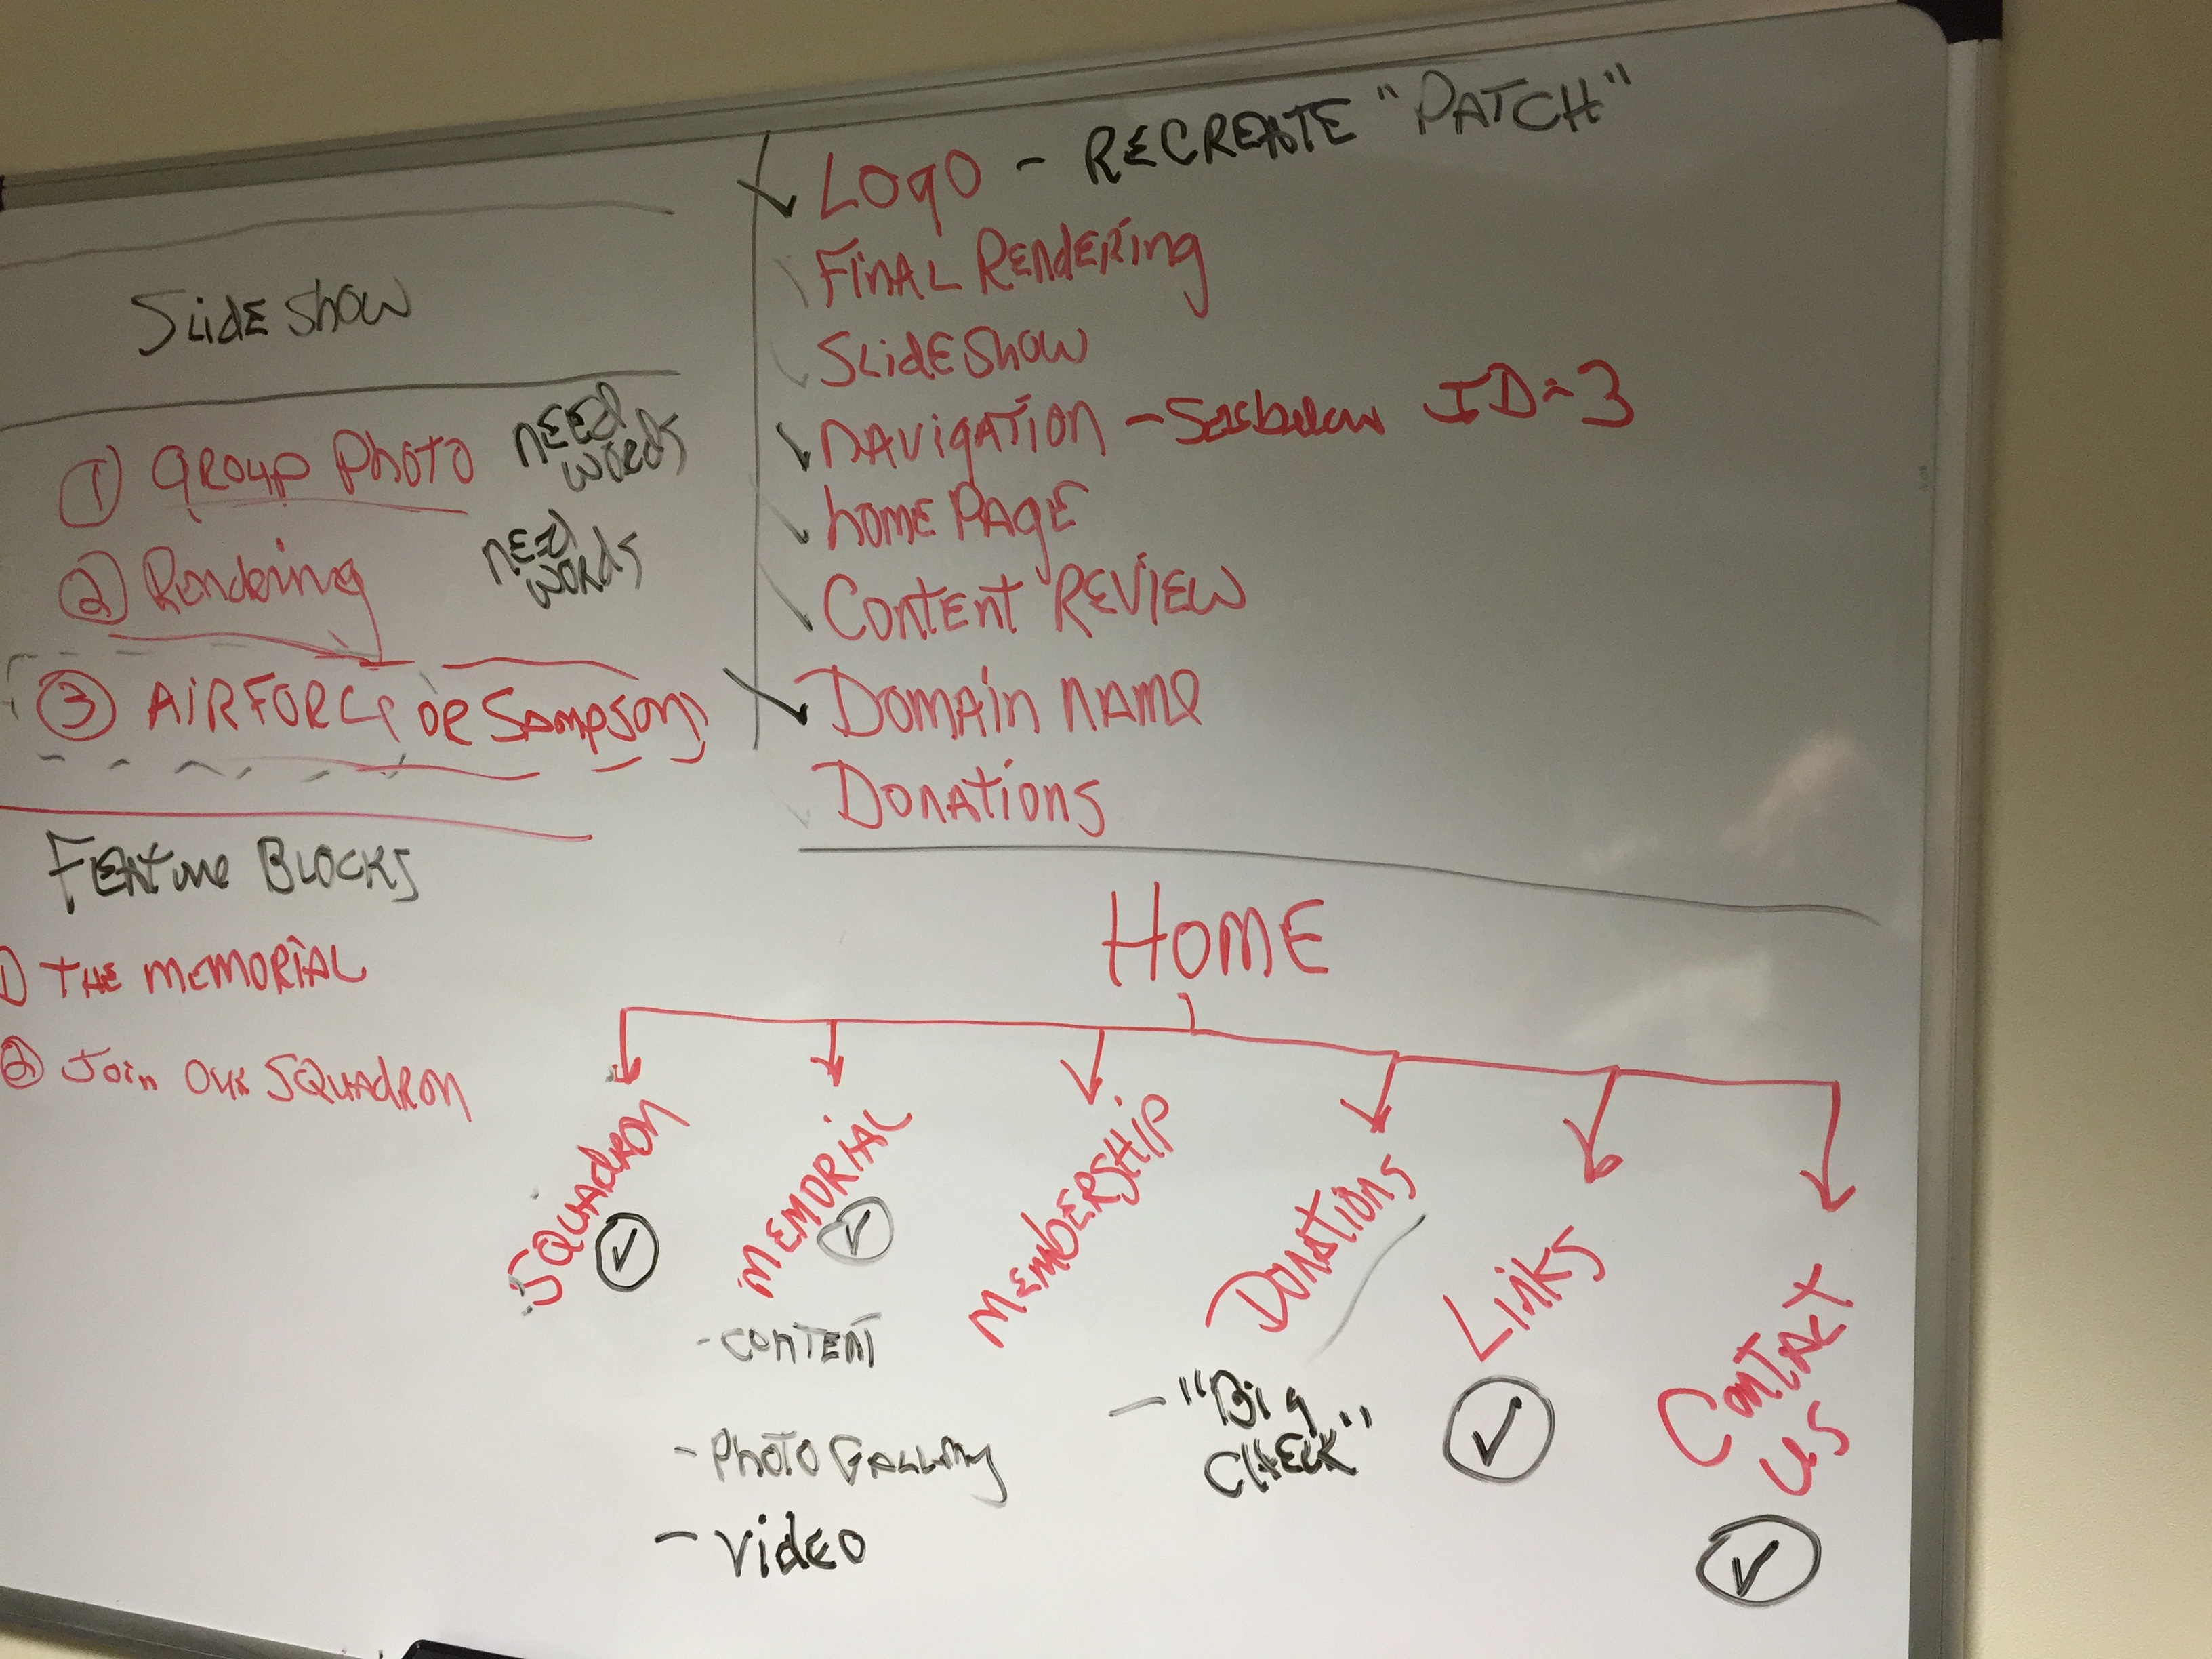 SlidE Show
① GROUP PhoTo NEED WORdS
② Rendering NEED WORdS
③ AIRFORCE OR SAmpson
FEATURE BLOCKS
1) THE MEMORIAL
② Join OUR SQUAdRON
LOgO - RECREATE "PATCH"
FINAL RENdERing
SLidEShow
NAVigATION - ID=3
homE PAgE
CONTENT REVIEW
DOMAin NAME
DONATIONS
HOME
SQUAdRON ✓
MEMORIAL ✓
- CONTENT
- PhoTo GALLERy
- VidEO
MEMbERSHIP
DONATIONS
- "Big
CHECK"
Links ✓
CONTACT
US ✓